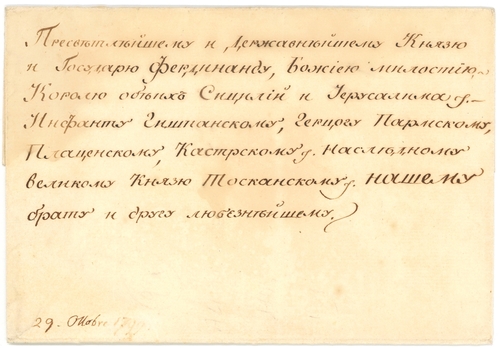 Пресвѣтлѣйшему и Державнѣйшему Князю
и Государю Фердинанду, Божіею милостію,
Королю обѣихъ Сицилій и Іерусалима,
Инфанту Гишпанскому, Герцогу Пармскому,
Плаценскому, Кастрскому, наслѣдному
великому Князю Тосканскому, нашему
брату и другу любезнѣйшему.
29.